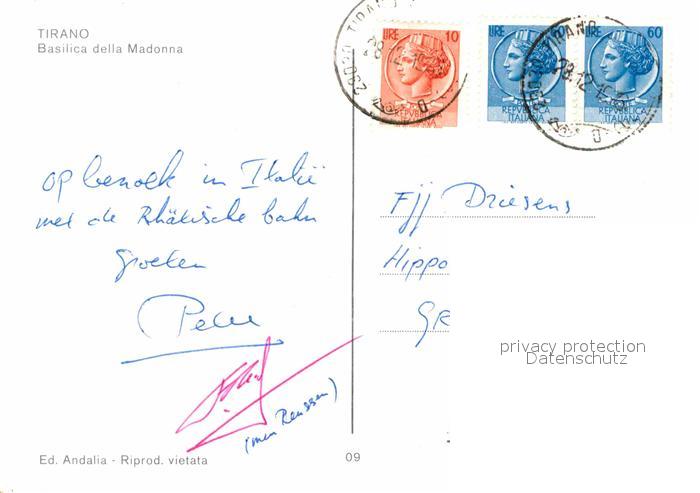 TIRANO
Basilica della Madonna
LIRE 10
REPVBBLICA
ITALIANA
LIRE
REPVBBLICA
ITALIANA
LIRE 60
REPVBBLICA
ITALIANA
TIRANO
28.12
TIRANO
28.12
op bezoek in Italië
met de Rhätische bahn
groeten
(men Renssen)
Driesens
Hippo
Gr
privacy protection
Datenschutz
Ed. Andalia - Riprod. vietata
09